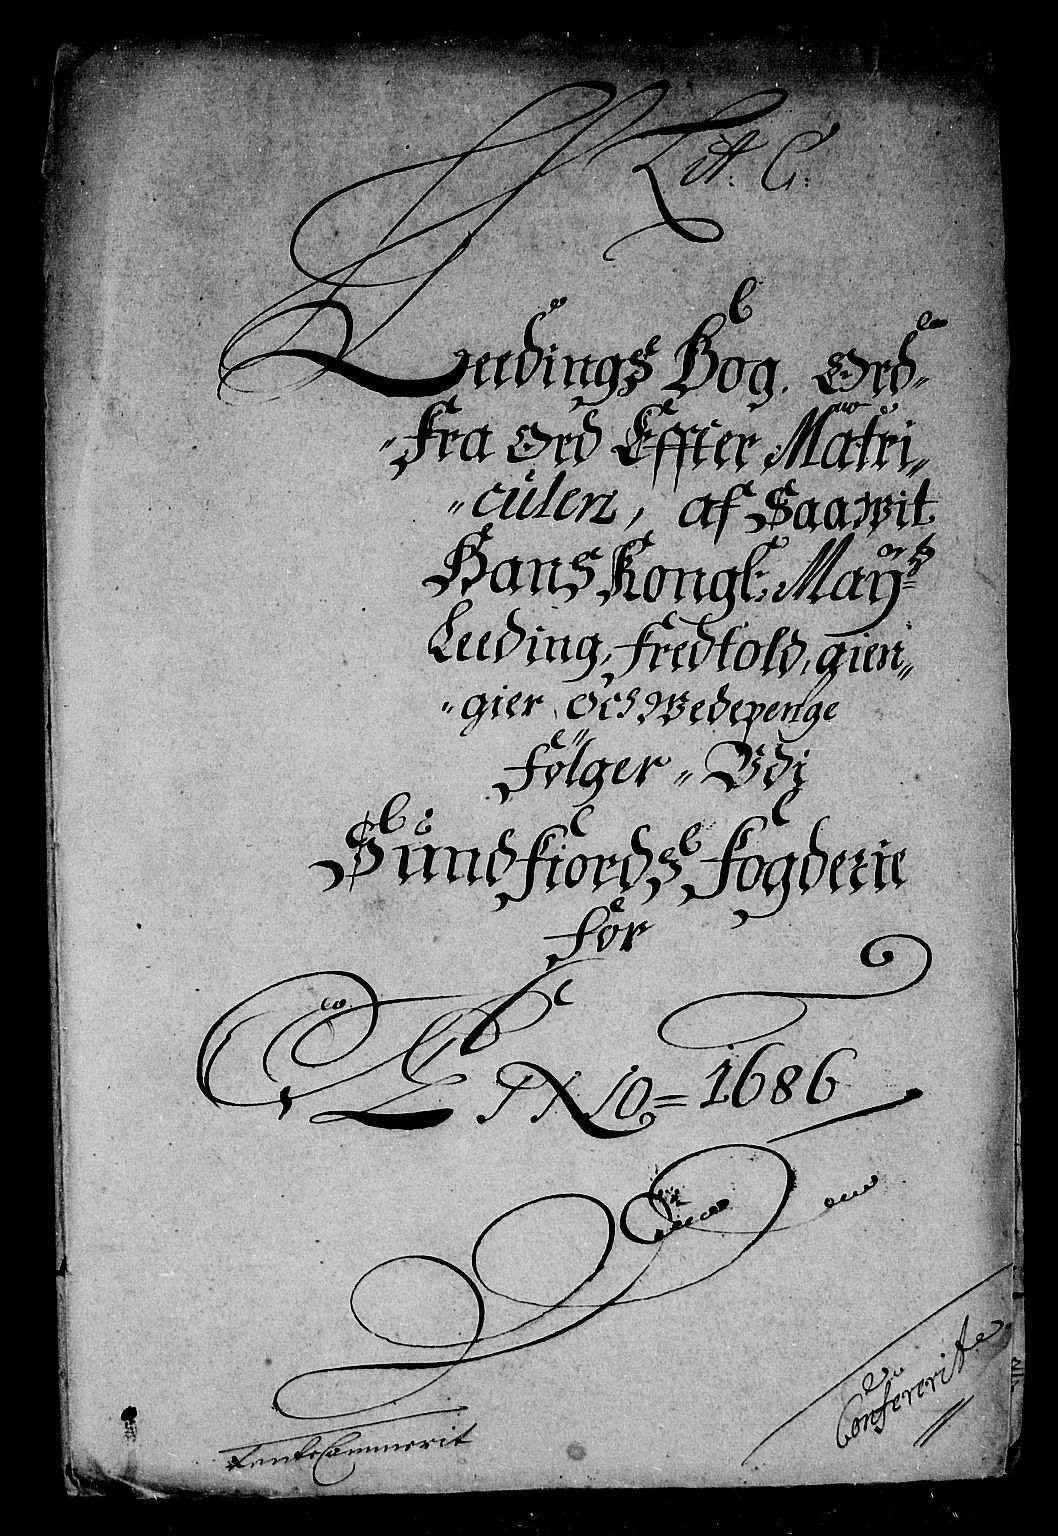 Litt. C:
Leedings Bog. Ord
fra Ord Effter Matri„
„culen, af Saawit
Hans Kongl: Mayts
Leeding, fredtold, gien„
„gier och Wedepenge
følger„ Vdi
Sundfiords Fogderie
for
A NNO = 1686
RenteCammerit
Confererit